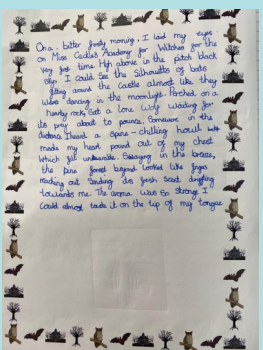 On a bitter frosty morning, I laid my eyes
on Miss Cackles Academy for Witches for the
very first time. High above in the pitch black
sky I could see the Silhouette of bats
flitting around the castle almost like they
were dancing in the moonlight. Perched on a
nearby rock, Sat a lone wolf waiting for
its prey about to pounce. Somewhere in the
distance I heard a spine-chilling howl
made my heart pound out of my chest
Which felt unbearable. Swaying in the breeze,
the pine forest beyond looked like fingers
reaching out Sending its fresh scent drifting
towards me. The aroma was So strong I
Could almost taste it on the tip of my tongue